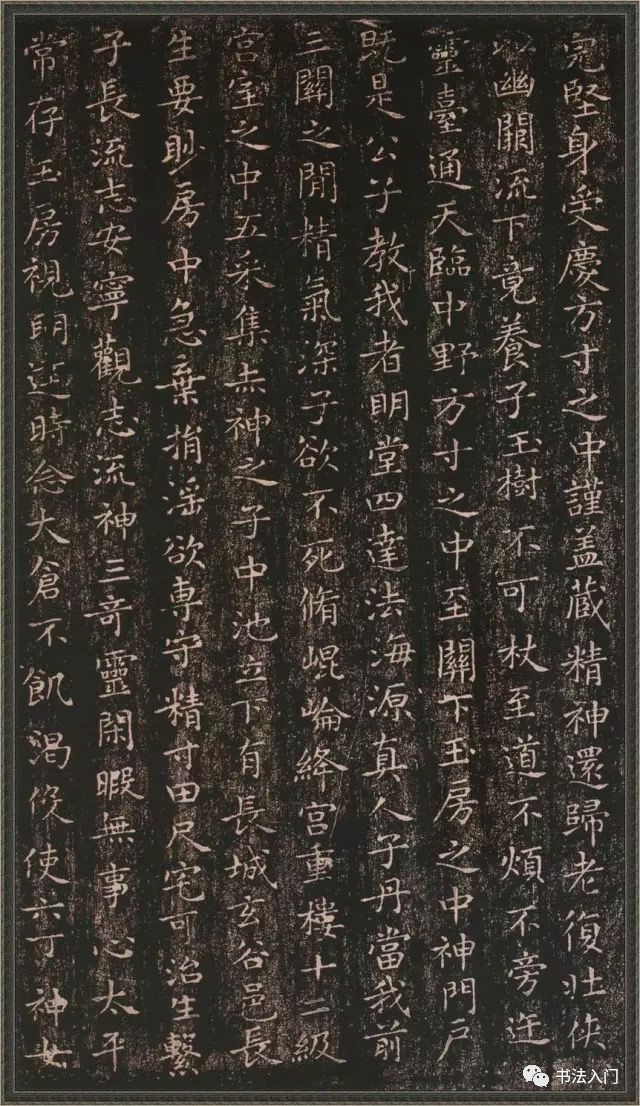 完堅身受慶方寸之中謹盖蔵精神還歸老復壯侠
以幽關流下竟養子玉樹不可杖至道不煩不旁迕
靈臺通天臨中野方寸之中至關下玉房之中神門戶
既是公子教我者眀堂四達法海源真人子丹當我前
三關之閒精氣深子欲不死脩崐崘絳宮重樓十二級
宮室之中五采集赤神之子中池立下有長城玄谷邑長
生要眇房中急棄捐淫欲専守精寸田尺宅可治生繫
子長流志安寧觀志流神三奇靈閑暇無事心太平
常存玉房視眀達時念大倉不飢渴伇使六丁神女
书法入门